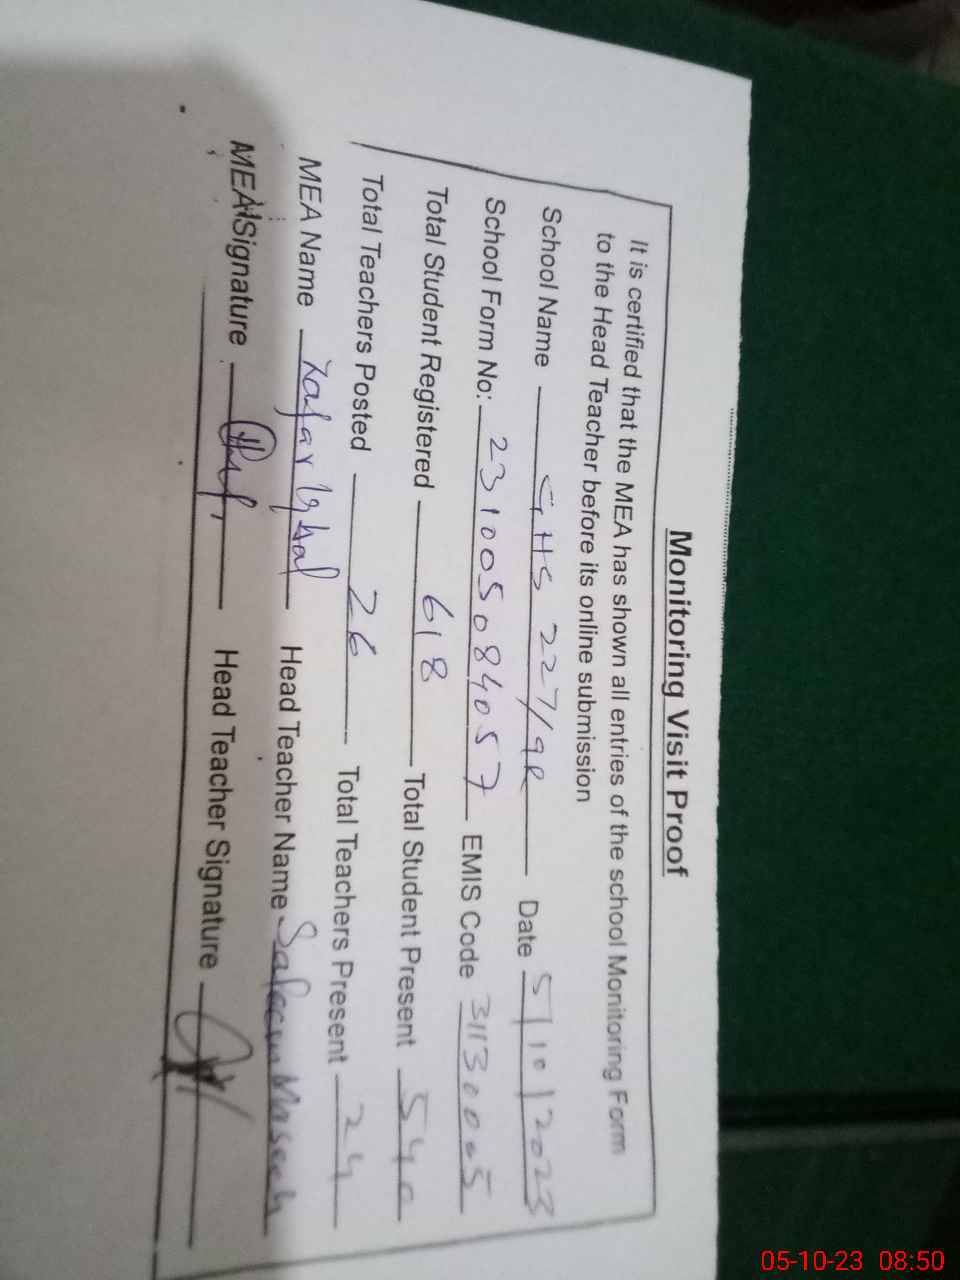 Monitoring Visit Proof
It is certified that the MEA has shown all entries of the school Monitoring Form
to the Head Teacher before its online submission
School Name GHS 227/9R Date 5/10/2023
School Form No: 231005084057 EMIS Code 31130005
Total Student Registered 618 Total Student Present 540
Total Teachers Posted 26 Total Teachers Present 24
MEA Name Zafar Iqbal Head Teacher Name Saleem Maseeh
MEA Signature Head Teacher Signature
05-10-23 08:50